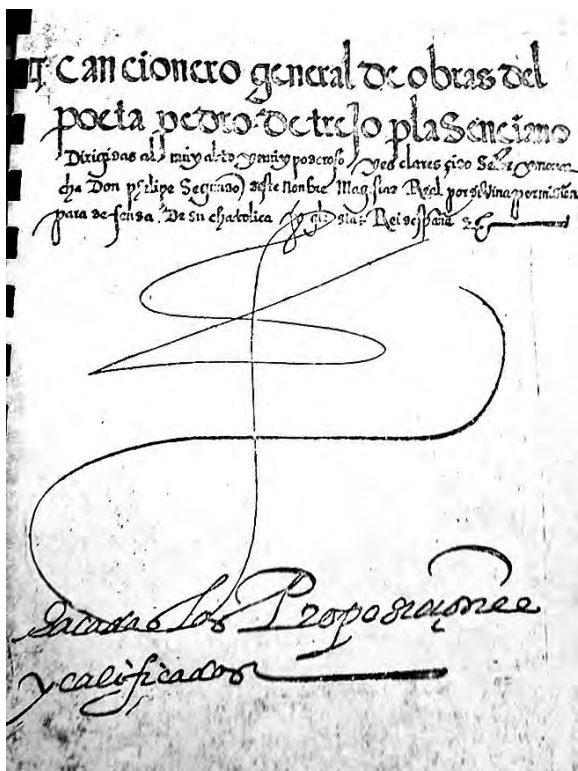 Cancionero general de obras del
poeta pedro de trejo plasenciano
Dirigidas al muy alto y muy poderoso y esclarescido Señor y monar
cha Don philipe Segundo deste nonbre Magestad Real por divina permission
para defensa De su chatolica Rei despaña
sacadas los Proposiciones
y calificados